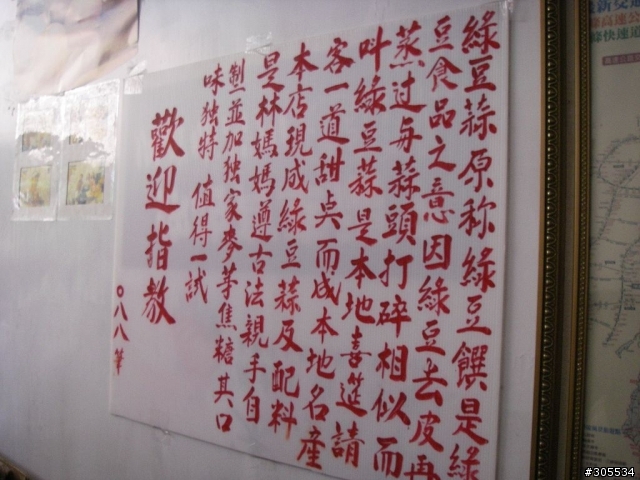 綠豆蒜原称綠豆饌是綠
豆食品之意因綠豆去皮再
蒸过与蒜頭打碎相似而
叫綠豆蒜是本地喜筵請
客一道甜点而成本地名產
本店現成綠豆蒜及配料
是林媽媽遵古法親手自
製並加独家麥芽焦糖其口
味独特 值得一試
歡迎指教
〇八八筆
#305534